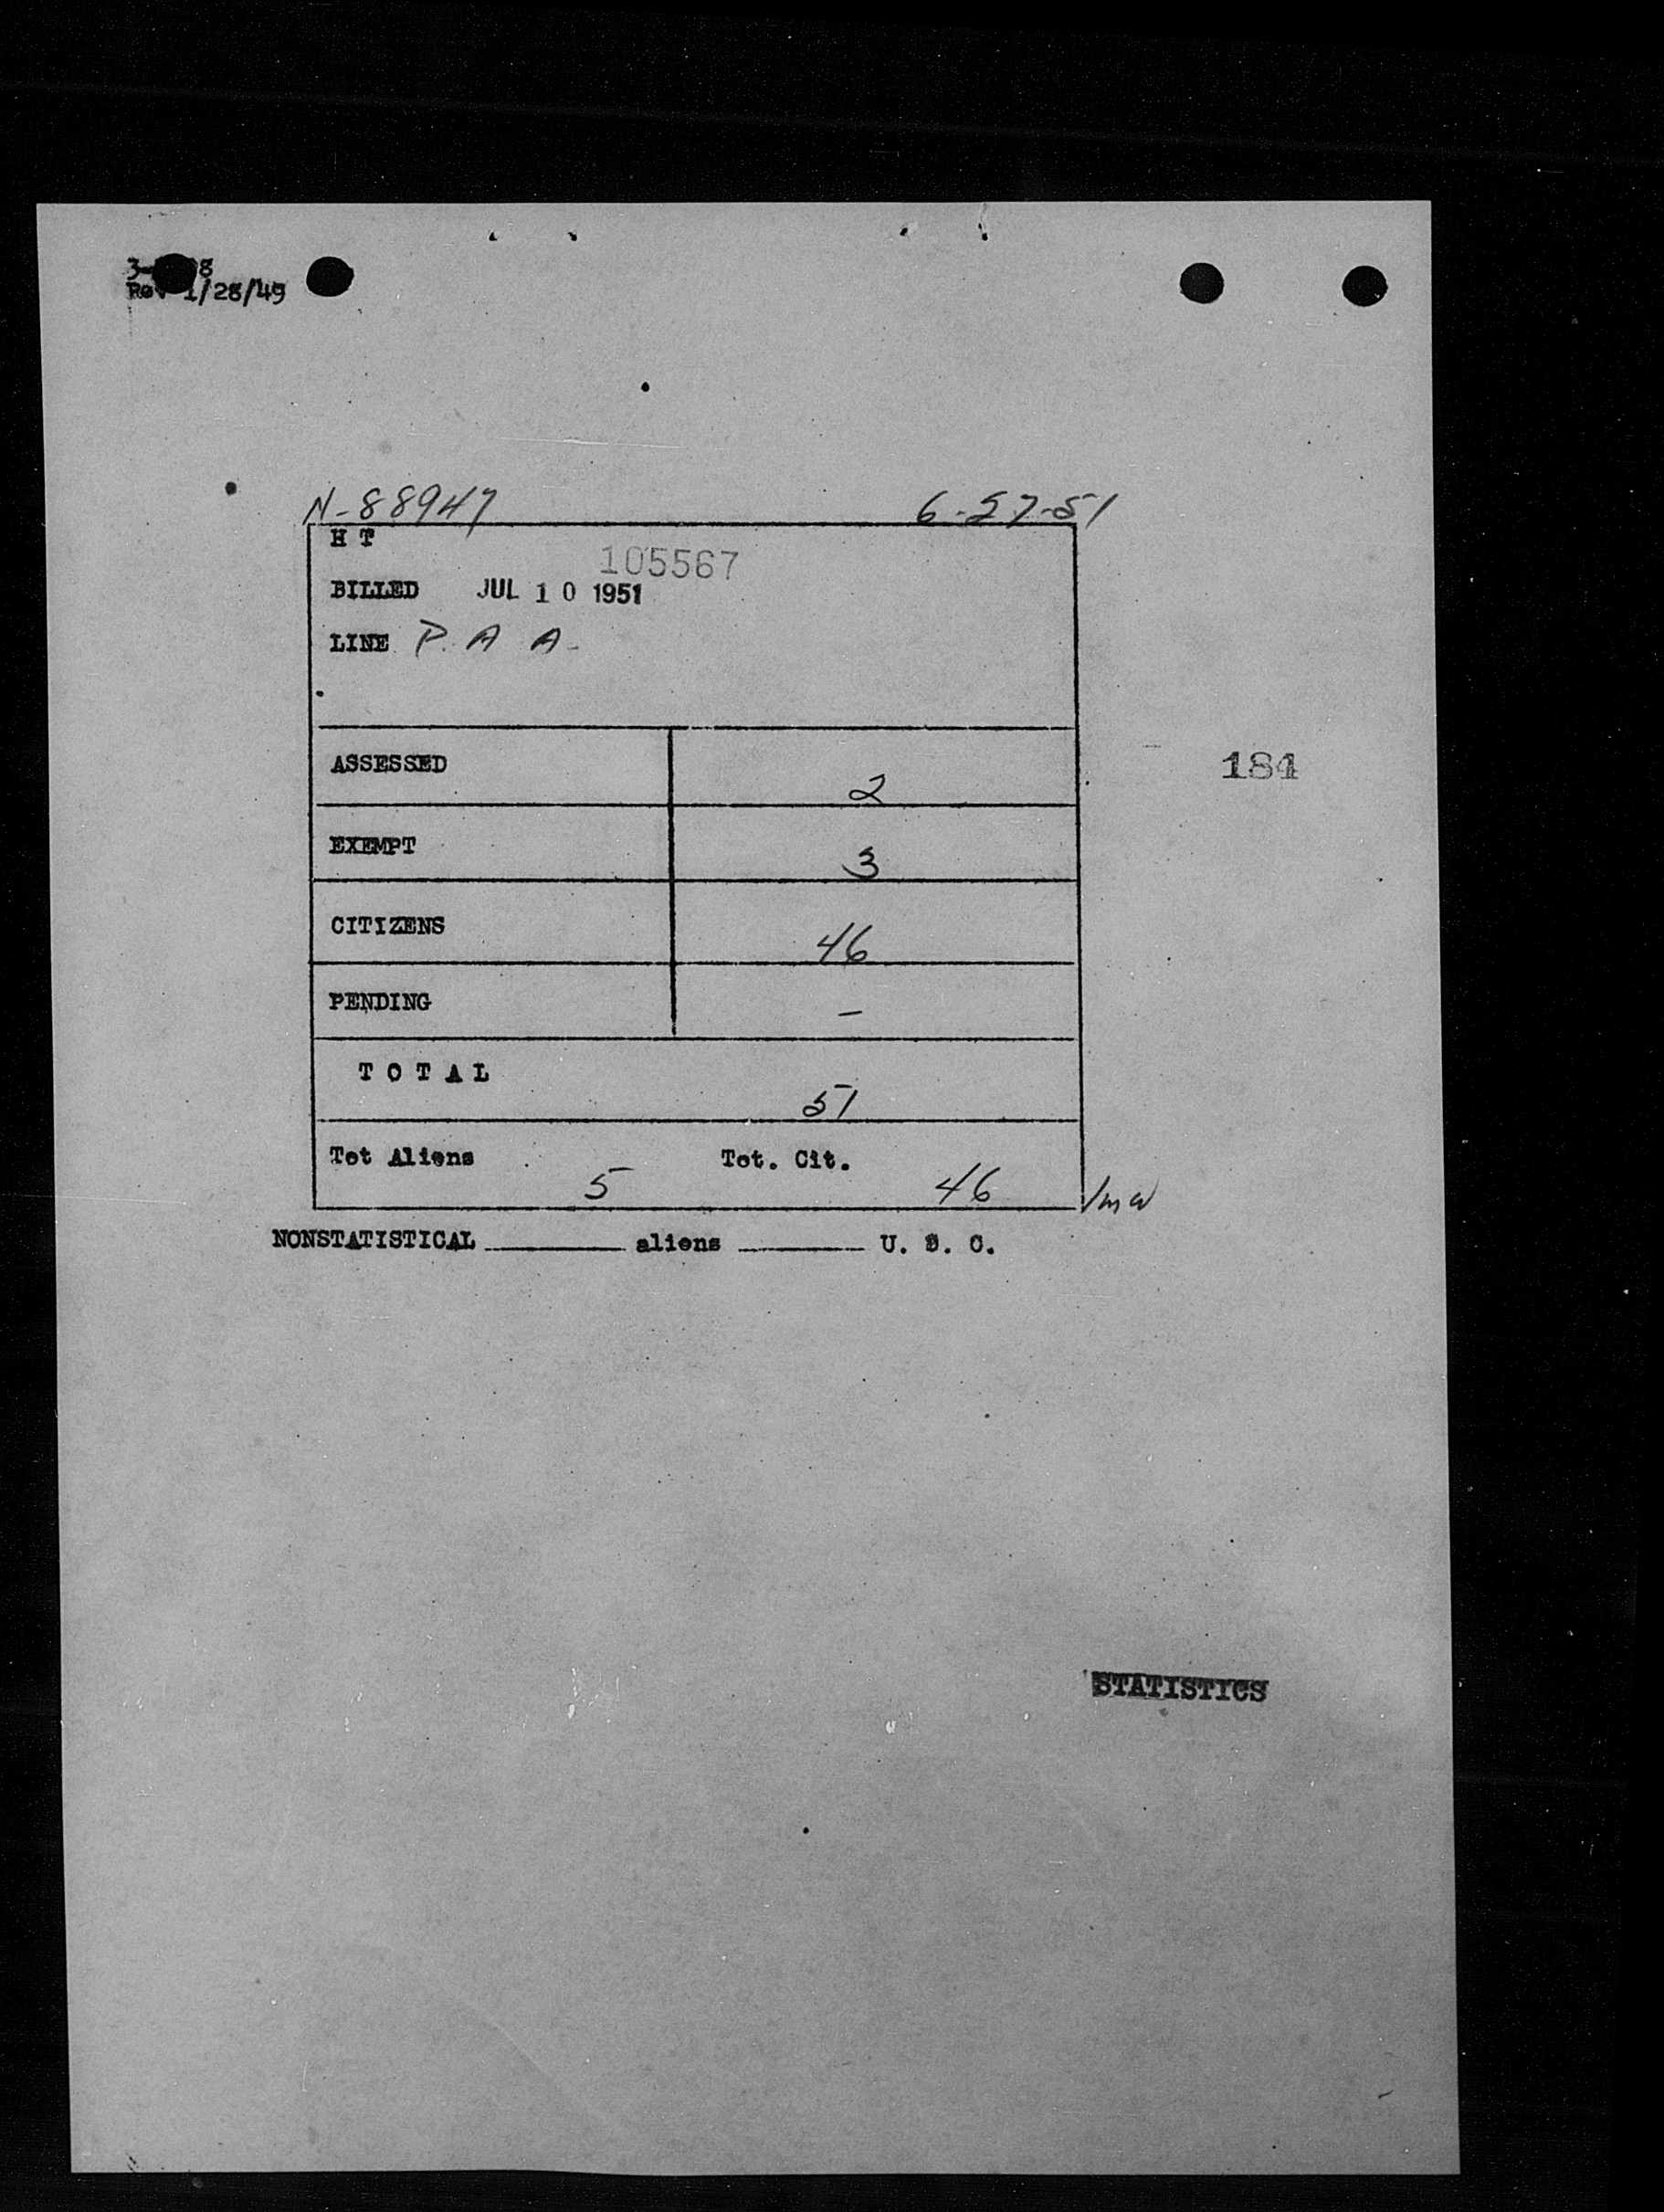 Rev 1/28/49
N-88947 6-27-51
H T
105567
BILLED JUL 10 1951
LINE P. A A-
ASSESSED 2
184
EXEMPT 3
CITIZENS 46
PENDING -
TOTAL 51
Tot Aliens 5 Tot. Cit. 46
NONSTATISTICAL ______ aliens ______ U. S. C.
STATISTICS